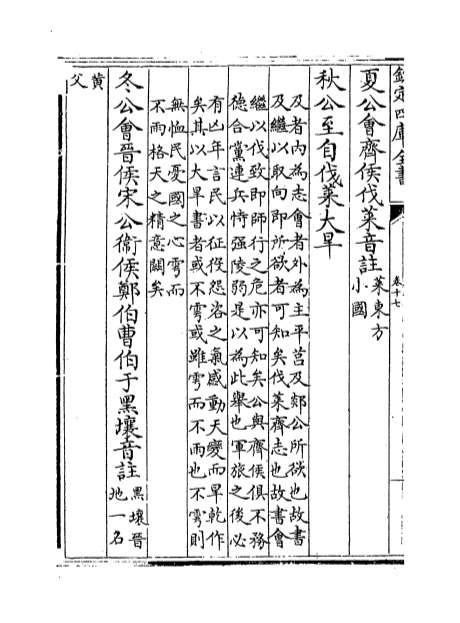 欽定四庫全書
卷十七
夏公會齊侯伐萊音註萊東方
小國
秋公至自伐萊大旱
及者內為志會者外為主平莒及郯公所欲也故書
及繼以取向即所欲者可知矣伐萊齊志也故書會
繼以伐致即師行之危亦可知矣公與齊侯俱不務
德合黨連兵恃强陵弱是以為此舉也軍旅之後必
有凶年言民以征役怨咨之氣感動天變而旱乾作
矣其以大旱書者或不雩或雖雩而不雨也不雩則
無恤民憂國之心雩而
不雨格天之精意闕矣
冬公會晉侯宋公衞侯鄭伯曹伯于黑壤音註黑壤晉
地一名
黄
父